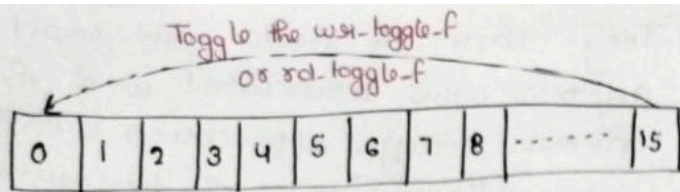 Toggle the wr-toggle-f
or rd-toggle-f
0 1 2 3 4 5 6 7 8 ....... 15